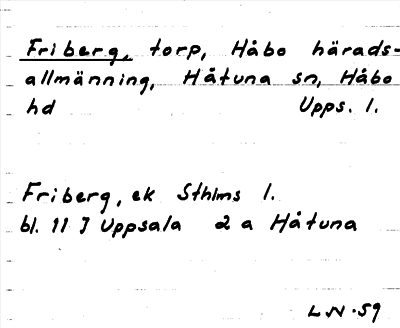 Friberg, torp, Håbo härads-
allmänning, Håtuna sn, Håbo
hd Upps. l.
Friberg, ek Sthlms l.
bl. 11 J Uppsala 2 a Håtuna
LN-59